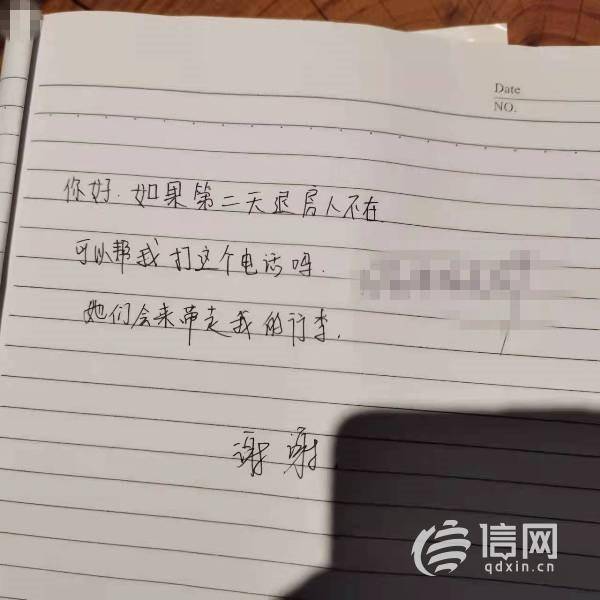 Date
NO.
你好.如果第二天退房人不在
可以帮我打这个电话吗.
她们会来带走我的行李.
谢谢
信网
qdxin.cn